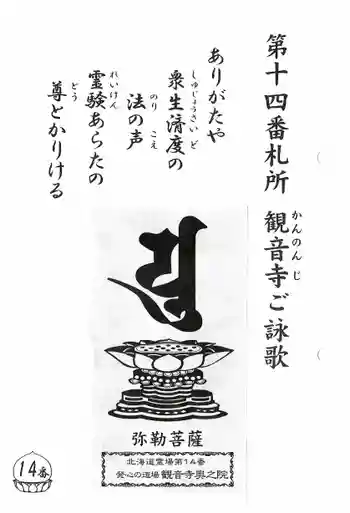 第十四番札所 観音寺ご詠歌
かんのん じ
ありがたや
衆生済度の
しゅじょうさいど
法の声
のり こえ
霊験あらたの
れいけん
尊とかりける
どう
弥勒菩薩
北海道霊場第14番
発心の道場 観音寺奥之院
14番